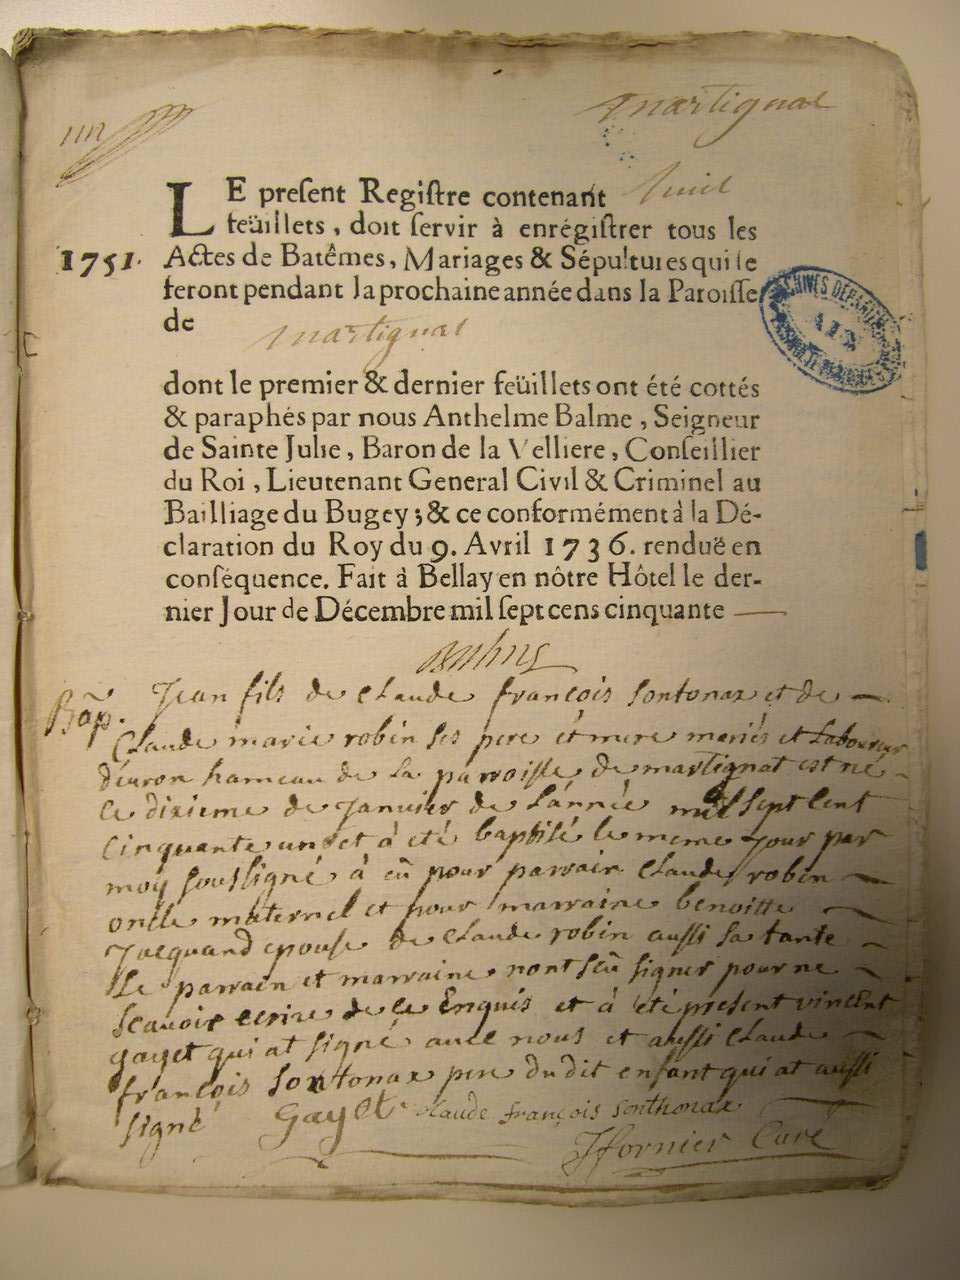 martignat
LE present Registre contenant huit
feüillets, doit servir à enrégistrer tous les
1751. Actes de Batêmes, Mariages & Sépultures qui se
feront pendant la prochaine année dans la Paroisse
de martignat
ARCHIVES DÉPART
AIN
dont le premier & dernier feüillets ont été cottés
& paraphés par nous Anthelme Balme, Seigneur
de Sainte Julie, Baron de la Velliere, Conseillier
du Roi, Lieutenant General Civil & Criminel au
Bailliage du Bugey; & ce conformément à la Dé-
claration du Roy du 9. Avril 1736. renduë en
conséquence. Fait à Bellay en nôtre Hôtel le der-
nier Jour de Décembre mil sept cens cinquante
Bap. Jean fils de Claude françois Sontonax et de
Claude marie robin ses pere et mere mariés et Laboureur
d'evron hameau de La parroisse de martignat est né
le dixieme de Janvier de L'année mil sept Cent
Cinquante un et à eté baptisé le meme Jour par
moy soussigné à eû pour parrain Claude robin
oncle maternel et pour marraine benoitte
Jacquand epouse de Claude robin aussi sa tante
Le parrain et marraine nont sceû signer pour ne
scavoir ecrire de ce Enquis et à été present vincent
gayet qui at signé avec nous et aussi Claude
françois Sontonax pere du dit enfant qui at aussi
signé Gayet Claude françois Sonthonax
Jfornier Curé